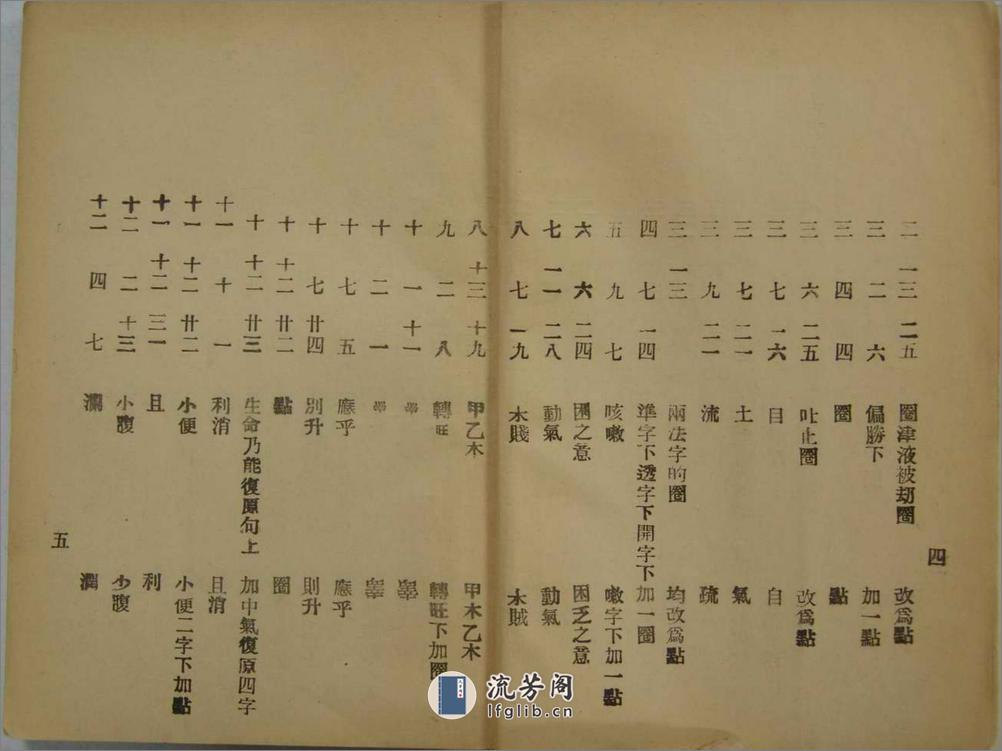 四
二 一三 二五 圈津液被刧圈 改爲點
三 二 六 偏勝下 加一點
三 四 四 圈 點
三 六 二五 吐止圈 改爲點
三 七 一六 目 自
三 七 二一 土 氣
三 九 二一 流 疏
三 一三 兩法字的圈 均改爲點
四 七 一四 準字下透字下開字下 加一圈
五 九 七 咳嗽 嗽字下加一點
六 六 二四 困之意 困乏之意
七 一一 二八 動氣 動氣
八 七 一九 木賤 木賊
八 十三 十九 甲乙木 甲木乙木
九 二 八 轉旺 轉旺下加圈
十 一 十一
十 二 一
十 七 五 應乎 應乎
十 七 廿四 別升 則升
十 十二 廿二 點 圈
十 十二 廿三 生命乃能復原句上 加中氣復原四字
十一 十 一 利消 且消
十一 十二 廿二 小便 小便二字下加點
十一 十二 三一 且 利
十二 二 十三 小腹 少腹
十二 四 七 瀾 潤
五
流芳阁
lfglib.cn